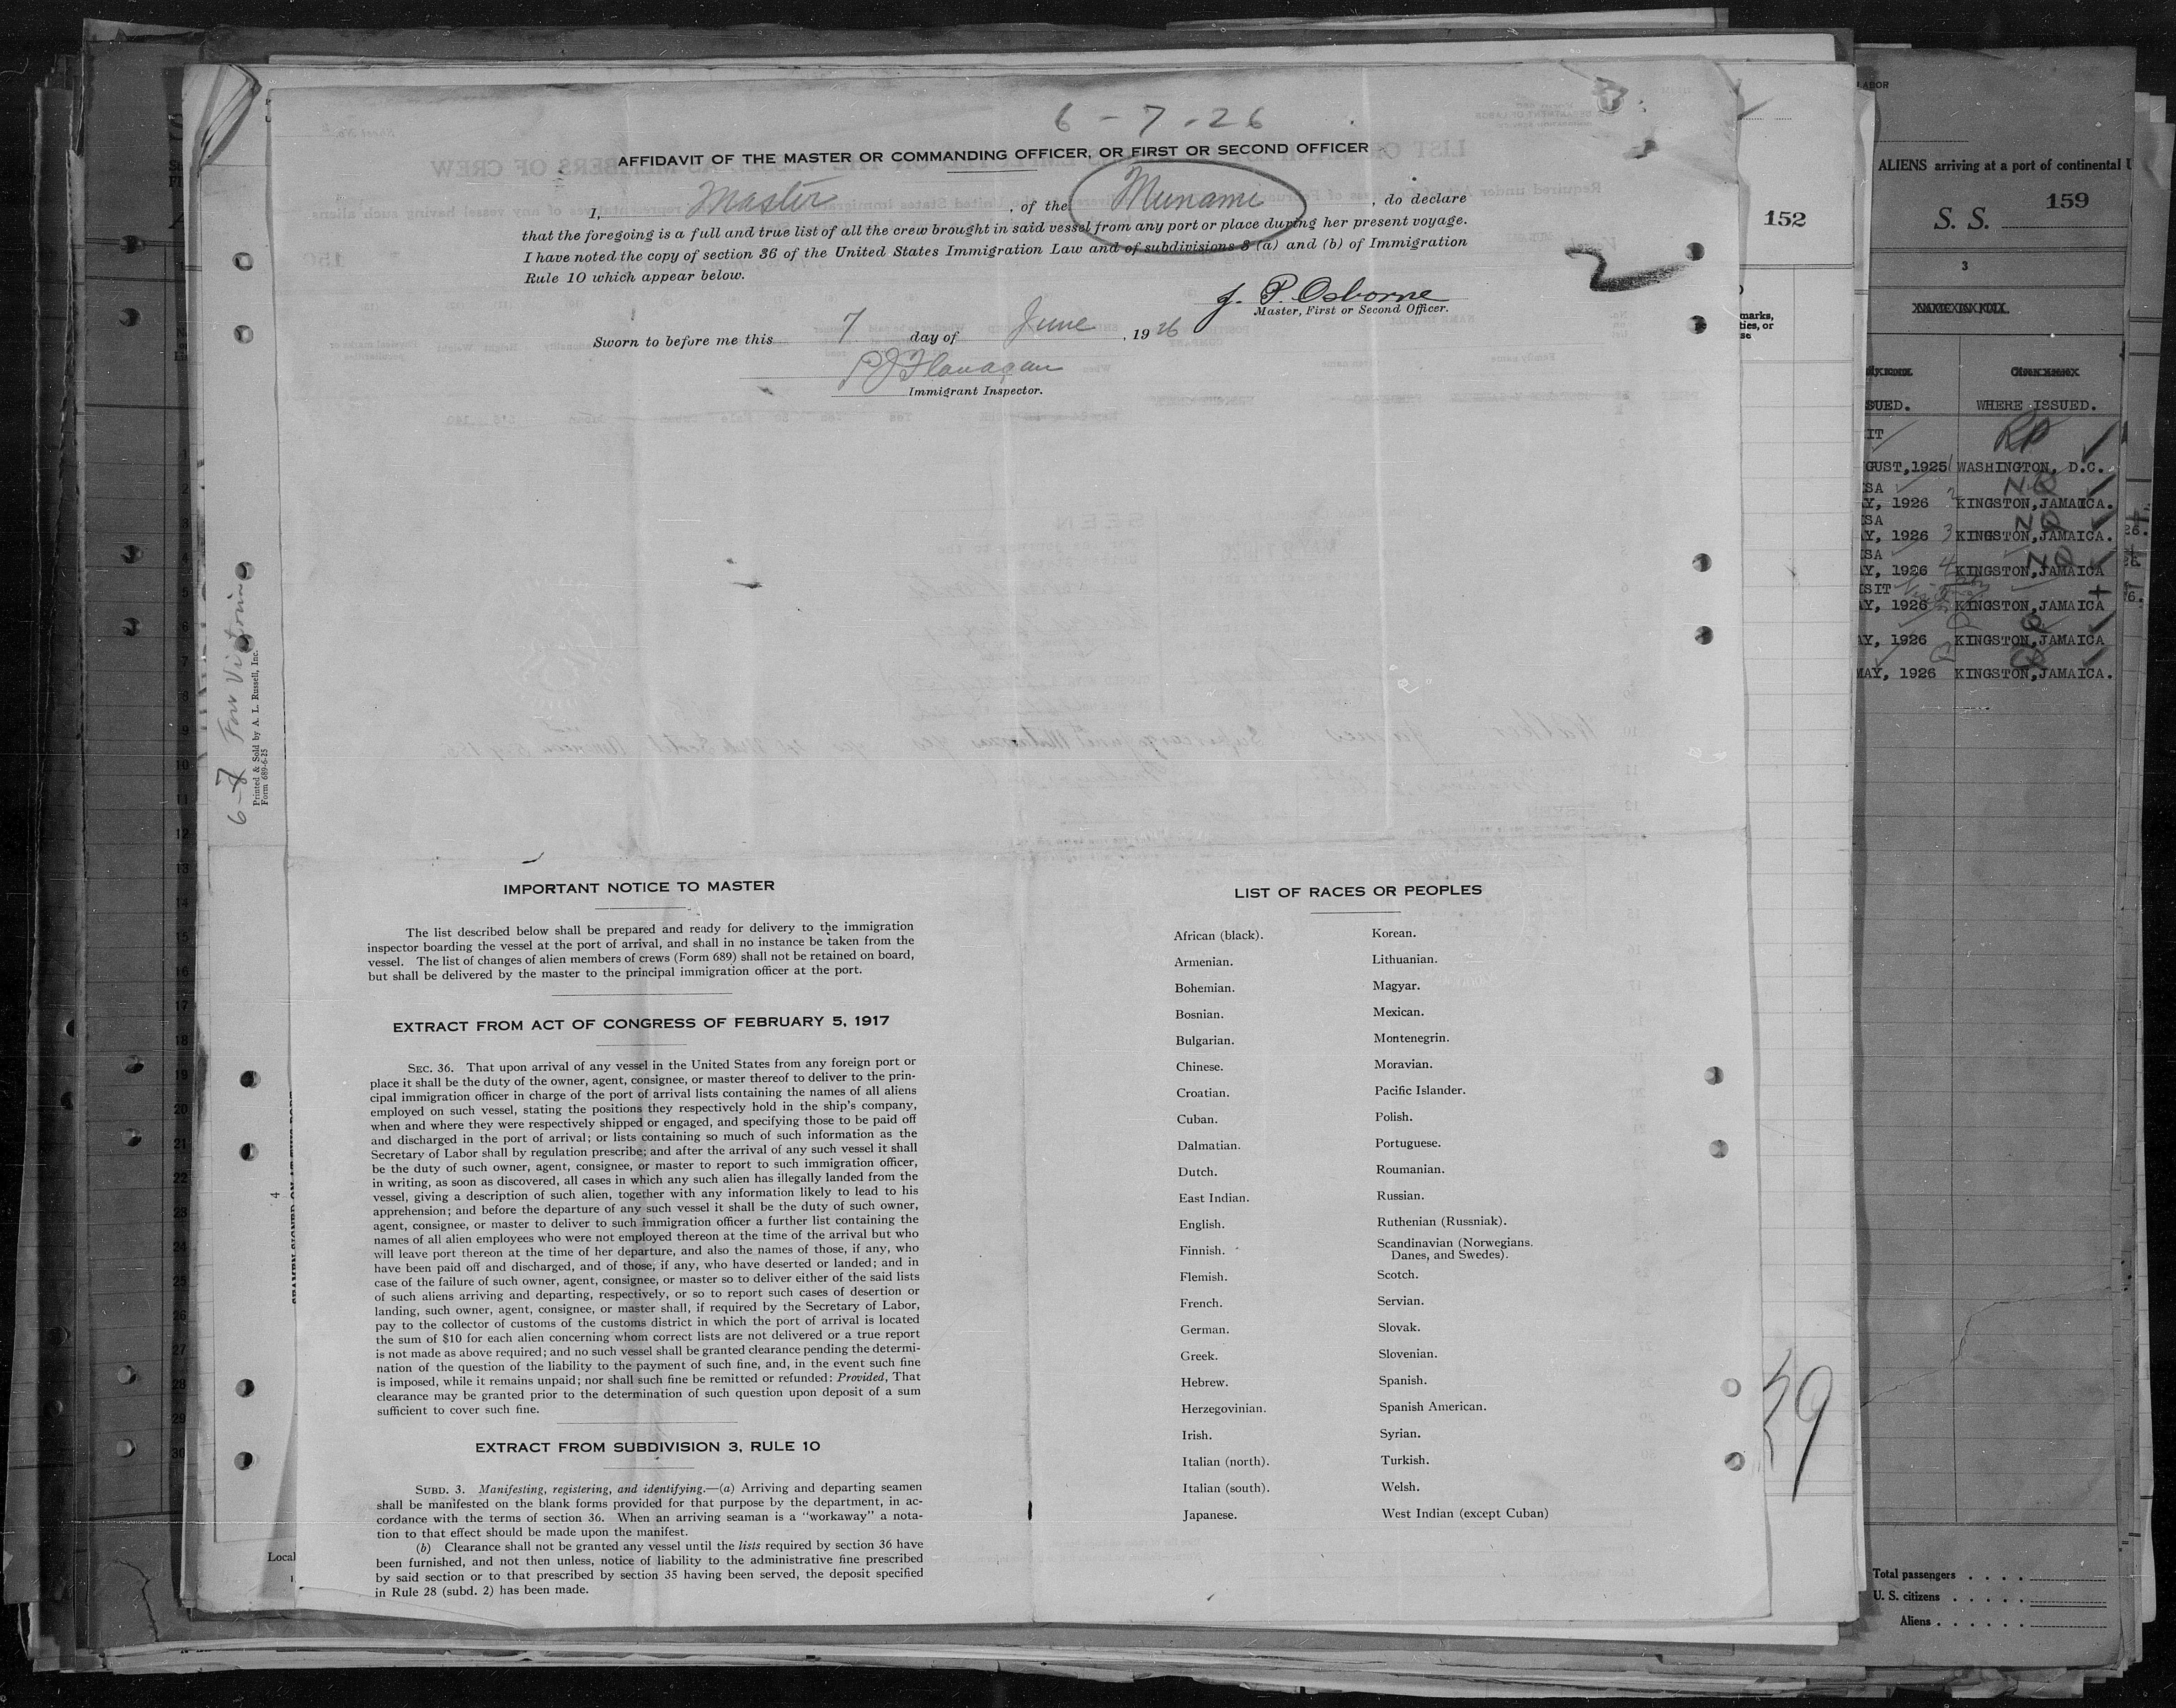 6 - 7 - 26
AFFIDAVIT OF THE MASTER OR COMMANDING OFFICER, OR FIRST OR SECOND OFFICER
I, Master, of the Muname, do declare
that the foregoing is a full and true list of all the crew brought in said vessel from any port or place during her present voyage.
I have noted the copy of section 36 of the United States Immigration Law and of subdivisions 3 (a) and (b) of Immigration
Rule 10 which appear below.
J. P. Osborne
Master, First or Second Officer.
Sworn to before me this 7 day of June, 1926
P J Flanagan
Immigrant Inspector.
IMPORTANT NOTICE TO MASTER
The list described below shall be prepared and ready for delivery to the immigration
inspector boarding the vessel at the port of arrival, and shall in no instance be taken from the
vessel. The list of changes of alien members of crews (Form 689) shall not be retained on board,
but shall be delivered by the master to the principal immigration officer at the port.
EXTRACT FROM ACT OF CONGRESS OF FEBRUARY 5, 1917
SEC. 36. That upon arrival of any vessel in the United States from any foreign port or
place it shall be the duty of the owner, agent, consignee, or master thereof to deliver to the prin-
cipal immigration officer in charge of the port of arrival lists containing the names of all aliens
employed on such vessel, stating the positions they respectively hold in the ship's company,
when and where they were respectively shipped or engaged, and specifying those to be paid off
and discharged in the port of arrival; or lists containing so much of such information as the
Secretary of Labor shall by regulation prescribe; and after the arrival of any such vessel it shall
be the duty of such owner, agent, consignee, or master to report to such immigration officer,
in writing, as soon as discovered, all cases in which any such alien has illegally landed from the
vessel, giving a description of such alien, together with any information likely to lead to his
apprehension; and before the departure of any such vessel it shall be the duty of such owner,
agent, consignee, or master to deliver to such immigration officer a further list containing the
names of all alien employees who were not employed thereon at the time of the arrival but who
will leave port thereon at the time of her departure, and also the names of those, if any, who
have been paid off and discharged, and of those, if any, who have deserted or landed; and in
case of the failure of such owner, agent, consignee, or master so to deliver either of the said lists
of such aliens arriving and departing, respectively, or so to report such cases of desertion or
landing, such owner, agent, consignee, or master shall, if required by the Secretary of Labor,
pay to the collector of customs of the customs district in which the port of arrival is located
the sum of $10 for each alien concerning whom correct lists are not delivered or a true report
is not made as above required; and no such vessel shall be granted clearance pending the determi-
nation of the question of the liability to the payment of such fine, and, in the event such fine
is imposed, while it remains unpaid; nor shall such fine be remitted or refunded: Provided, That
clearance may be granted prior to the determination of such question upon deposit of a sum
sufficient to cover such fine.
EXTRACT FROM SUBDIVISION 3, RULE 10
SUBD. 3. Manifesting, registering, and identifying.—(a) Arriving and departing seamen
shall be manifested on the blank forms provided for that purpose by the department, in ac-
cordance with the terms of section 36. When an arriving seaman is a "workaway" a nota-
tion to that effect should be made upon the manifest.
(b) Clearance shall not be granted any vessel until the lists required by section 36 have
been furnished, and not then unless, notice of liability to the administrative fine prescribed
by said section or to that prescribed by section 35 having been served, the deposit specified
in Rule 28 (subd. 2) has been made.
LIST OF RACES OR PEOPLES
African (black).
Armenian.
Bohemian.
Bosnian.
Bulgarian.
Chinese.
Croatian.
Cuban.
Dalmatian.
Dutch.
East Indian.
English.
Finnish.
Flemish.
French.
German.
Greek.
Hebrew.
Herzegovinian.
Irish.
Italian (north).
Italian (south).
Japanese.
Korean.
Lithuanian.
Magyar.
Mexican.
Montenegrin.
Moravian.
Pacific Islander.
Polish.
Portuguese.
Roumanian.
Russian.
Ruthenian (Russniak).
Scandinavian (Norwegians.
Danes, and Swedes).
Scotch.
Servian.
Slovak.
Slovenian.
Spanish.
Spanish American.
Syrian.
Turkish.
Welsh.
West Indian (except Cuban)
Printed & Sold by A. L. Russell, Inc.
Form 689-6-25
6-7 Fort Victoria
4
Local
152
ALIENS arriving at a port of continental
S. S.
159
3
SUED. WHERE ISSUED.
RP
GUST, 1925 WASHINGTON, D.C.
NQ
Y, 1926 2 KINGSTON, JAMAICA.
NQ
Y, 1926 3 KINGSTON, JAMAICA.
NQ
Y, 1926 4 KINGSTON, JAMAICA
Y, 1926 KINGSTON, JAMAICA
AY, 1926 KINGSTON, JAMAICA
MAY, 1926 KINGSTON, JAMAICA.
39
Total passengers
U. S. citizens
Aliens